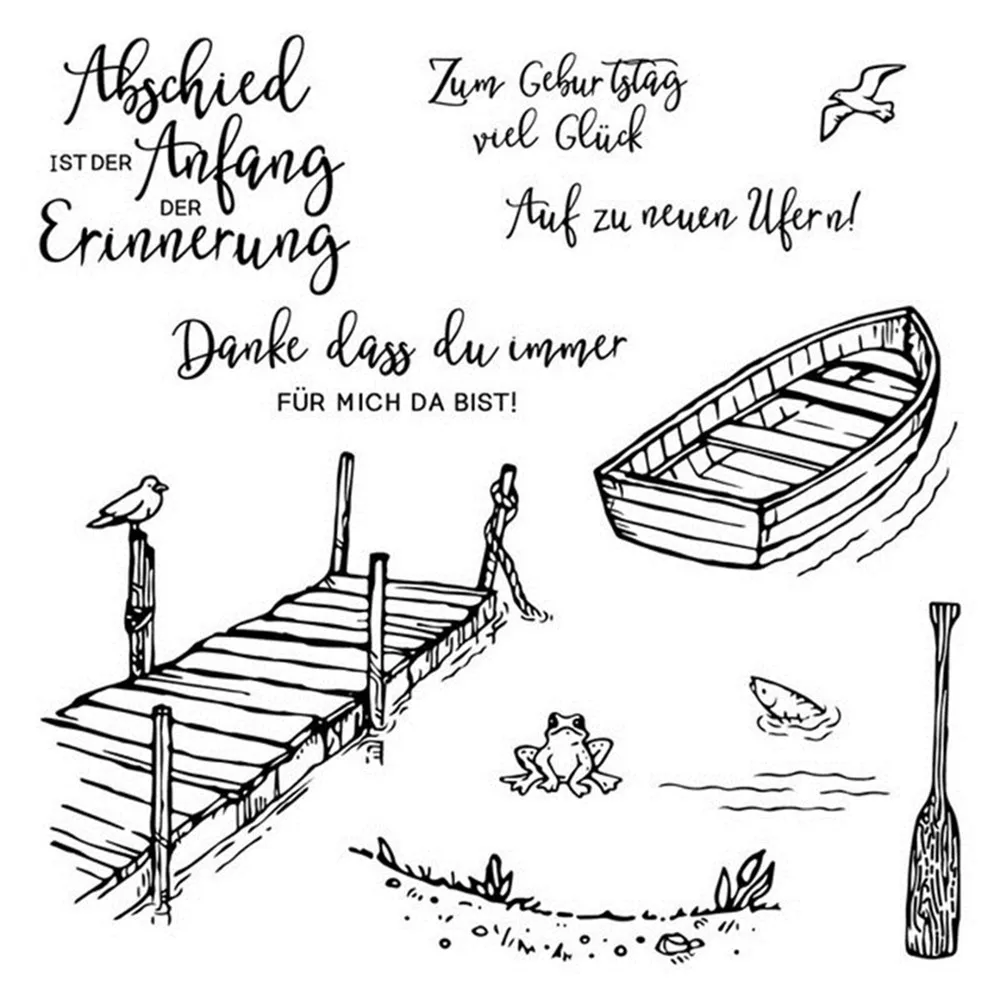 Abschied
IST DER Anfang
DER
Erinnerung
Zum Geburtstag
viel Glück
Auf zu neuen Ufern!
Danke dass du immer
FÜR MICH DA BIST!